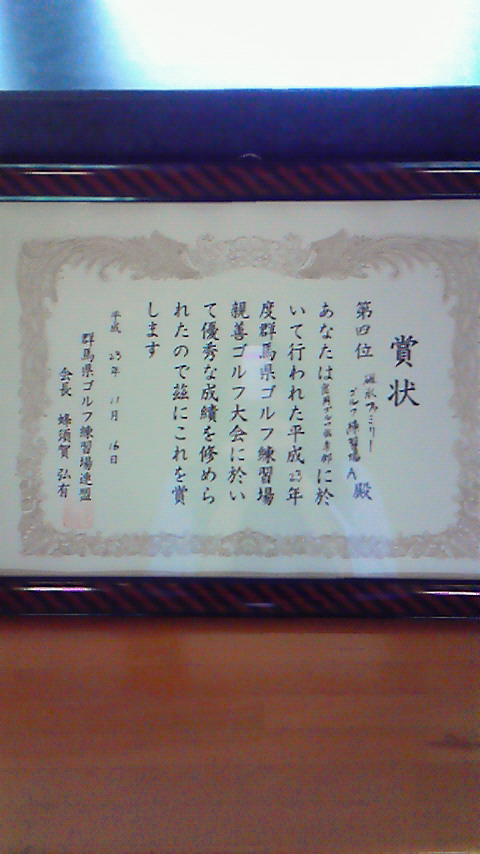 賞状
第四位 碓氷ファミリー
ゴルフ練習場 A 殿
あなたは ゴルフ倶楽部 に於
いて行われた平成23年
度群馬県ゴルフ練習場
親善ゴルフ大会に於い
て優秀な成績を修めら
れたので茲にこれを賞
します
平成 23年 11月 16日
群馬県ゴルフ練習場連盟
会長 蜂須賀 弘有